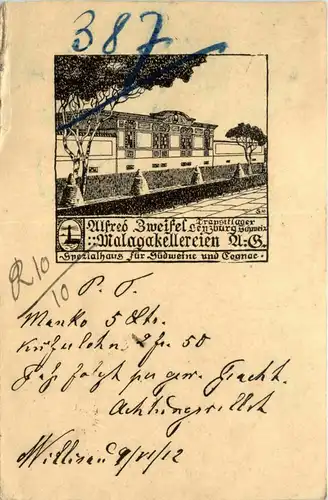 387
Alfred Zweifel Transitlager
Lenzburg Schweiz
::Malagakellereien A.-G.
·Spezialhaus für Südweine und Cognac·
10
10
P. T.
Manko 5 Ltr.
2 fr 50
Faß folgt per gew. Fracht.
Achtungsvollst
Willisau 9/VI/12